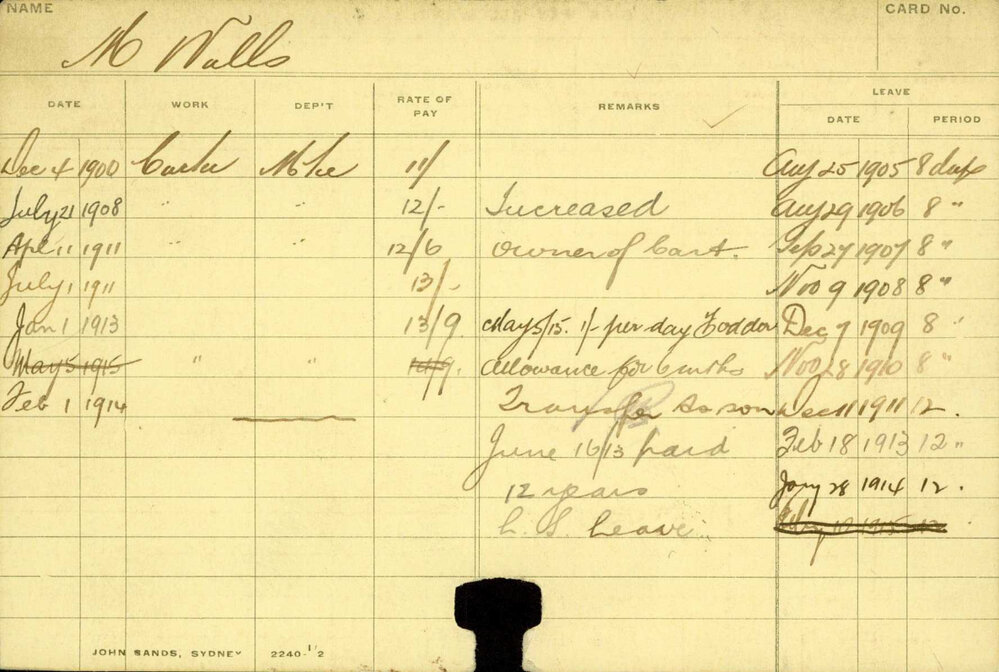 NAME
CARD No.
M Walls
DATE WORK DEP'T RATE OF PAY REMARKS LEAVE
DATE PERIOD
Dec 4 1900 Carter 11/ Aug 25 1905 8 days
July 21 1908 " " 12/- Increased Aug 29 1906 8 "
Apl 11 1911 " " 12/6 Owner of Cart. Sep 27 1907 8 "
July 1 1911 13/- Nov 9 1908 8 "
Jan 1 1913 13/9. May 5/15. 1/- per day Fodder Dec 7 1909 8 "
May 5 1915 " " 14/9. Allowance for 6 mths Nov 28 1910 8 "
Feb 1 1914 Transfer to son Dec 11 1911 12.
June 16/13 paid Feb 18 1913 12 "
12 years Jany 28 1914 12.
L. S. Leave. 1915 12
JOHN SANDS, SYDNEY 2240-1/2